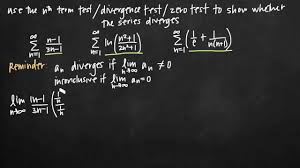 use the nth term test/divergence test/zero test to show whether
the series diverges
∞ ∑ n=1 n-1/3n-1 ∞ ∑ n=1 ln(n²+1/2n²+1) ∞ ∑ n=1 (1/e + 1/n(n+1))
Reminder: an diverges if lim n→∞ an ≠ 0
inconclusive if lim n→∞ an = 0
lim n→∞ n-1/3n-1 (1/n / 1/n